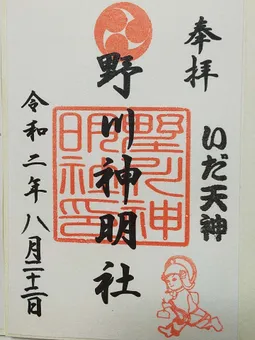 奉拝
いだ天神
野川神明社
令和二年八月二十二日
野川神
明社印